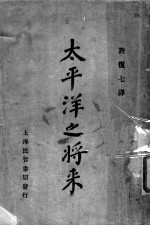 許復七譯
太平洋之将来
上海民智書局發行